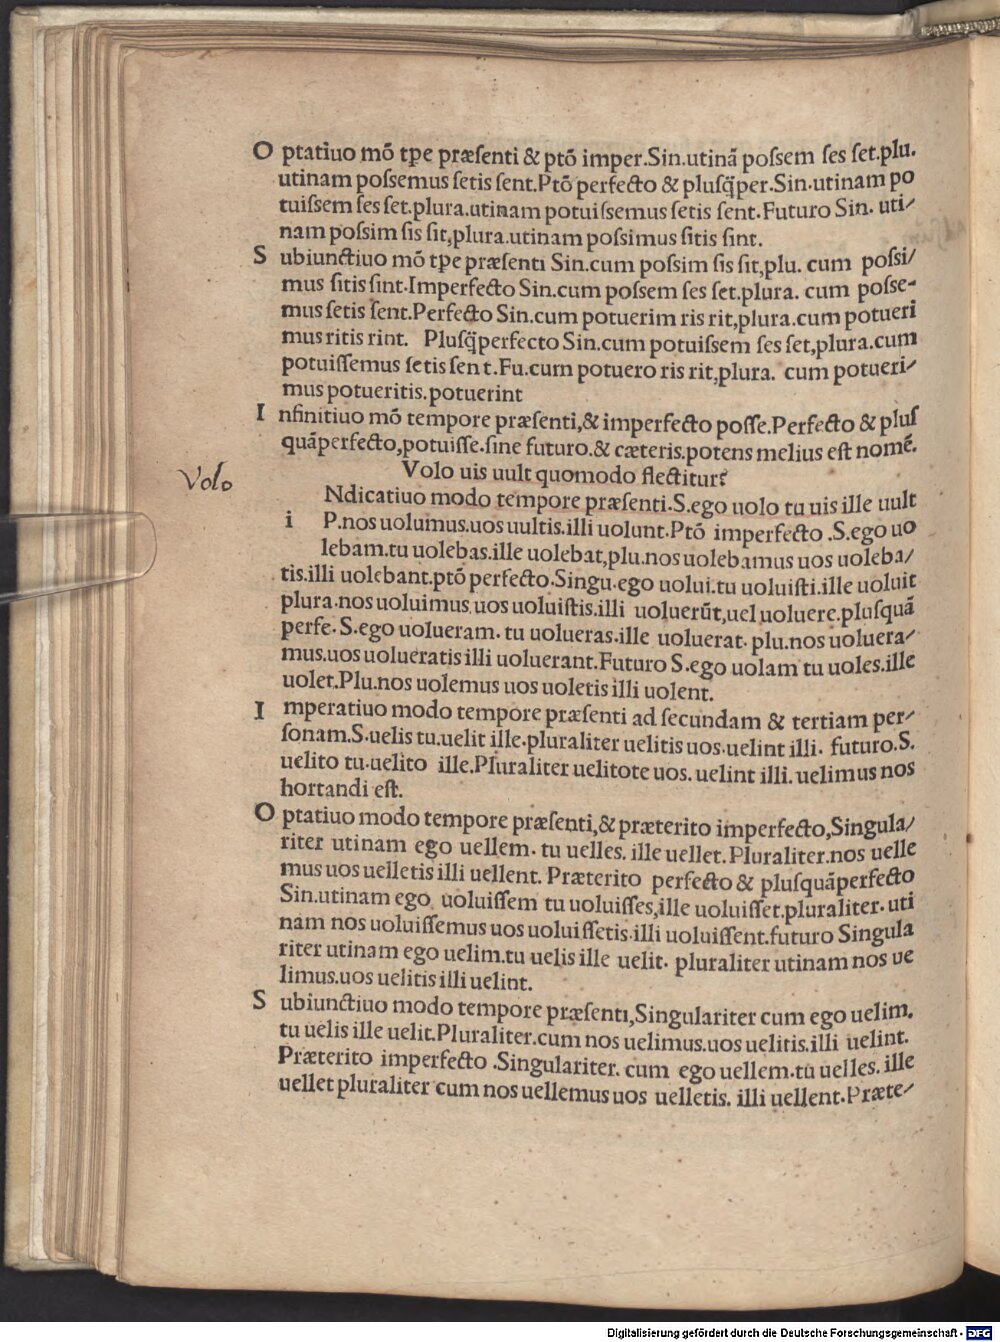 O ptatiuo mō tpe præſenti & ptō imper.Sin.utinā poſsem ſes ſet.plu.
utinam poſsemus ſetis ſent.Ptō perfecto & pluſq̄per.Sin.utinam po
tuiſsem ſes ſet.plura.utinam potuiſsemus ſetis ſent.Futuro Sin. uti⸗
nam poſsim ſis ſit,plura.utinam poſsimus ſitis ſint.
S ubiunctiuo mō tpe præſenti Sin.cum poſsim ſis ſit,plu. cum poſsi⸗
mus ſitis ſint.Imperfecto Sin.cum poſsem ſes ſet.plura. cum poſse⸗
mus ſetis ſent.Perfecto Sin.cum potuerim ris rit,plura.cum potueri
mus ritis rint. Pluſq̄perfecto Sin.cum potuiſsem ſes ſet,plura.cum
potuiſſemus ſetis ſen t.Fu.cum potuero ris rit,plura. cum potueri⸗
mus potueritis.potuerint
I nfinitiuo mō tempore præſenti,& imperfecto poſſe.Perfecto & pluſ
quāperfecto,potuiſſe.ſine futuro.& cæteris.potens melius eſt nomē.
Volo uis uult quomodo flectitur?
Volo
Ndicatiuo modo tempore præſenti.S.ego uolo tu uis ille uult
i P.nos uolumus.uos uultis.illi uolunt.Ptō imperfecto .S.ego uo
lebam.tu uolebas.ille uolebat,plu.nos uolebamus uos uoleba⸗
tis.illi uolebant.ptō perfecto.Singu.ego uolui.tu uoluiſti.ille uoluit
plura.nos uoluimus uos uoluiſtis.illi uoluerūt,uel uoluere.pluſquā
perfe.S.ego uolueram. tu uolueras.ille uoluerat. plu.nos uoluera⸗
mus.uos uolueratis illi uoluerant.Futuro S.ego uolam tu uoles.ille
uolet.Plu.nos uolemus uos uoletis illi uolent.
I mperatiuo modo tempore præſenti ad ſecundam & tertiam per⸗
ſonam.S.uelis tu.uelit ille.pluraliter uelitis uos.uelint illi. futuro.S.
uelito tu.uelito ille.Pluraliter uelitote uos. uelint illi. uelimus nos
hortandi eſt.
O ptatiuo modo tempore præſenti,& præterito imperfecto,Singula⸗
riter utinam ego uellem. tu uelles. ille uellet.Pluraliter.nos uelle
mus uos uelletis illi uellent. Præterito perfecto & pluſquāperfecto
Sin.utinam ego uoluiſſem tu uoluiſſes,ille uoluiſſet.pluraliter. uti
nam nos uoluiſſemus uos uoluiſſetis.illi uoluiſſent.futuro Singula
riter utinam ego uelim.tu uelis ille uelit. pluraliter utinam nos ue
limus.uos uelitis illi uelint.
S ubiunctiuo modo tempore præſenti,Singulariter cum ego uelim.
tu uelis ille uelit.Pluraliter.cum nos uelimus.uos uelitis.illi uelint.
Præterito imperfecto .Singulariter. cum ego uellem.tu uelles. ille
uellet pluraliter cum nos uellemus uos uelletis. illi uellent.Præte⸗
Digitalisierung gefördert durch die Deutsche Forschungsgemeinschaft - DFG